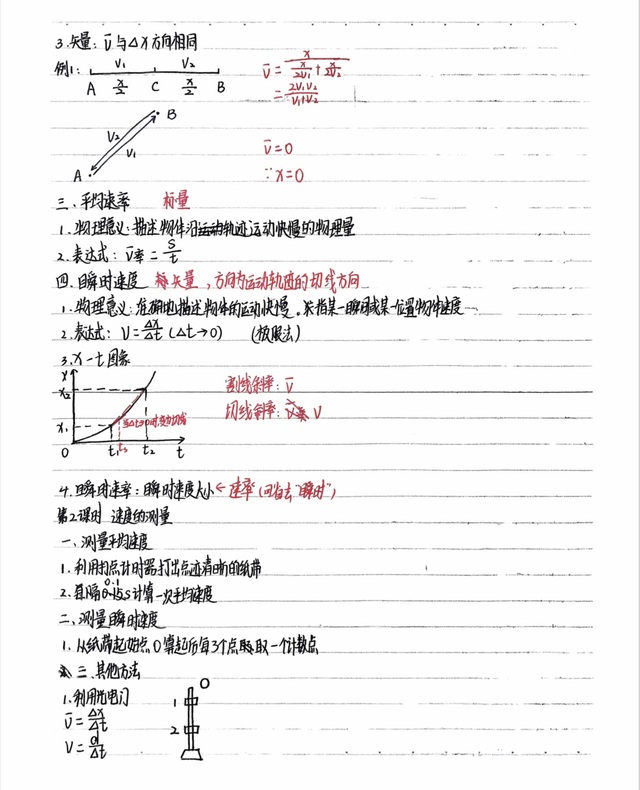 3.矢量: v̄ 与 Δx 方向相同
例1: V₁ V₂ v̄ = x / (x/2V₁ + x/2V₂)
A x/2 C x/2 B = 2V₁V₂ / (V₁+V₂)
B
V₂
V₁ v̄ = 0
A ∵ x = 0
三、平均速率 标量
1.物理意义:描述物体沿运动轨迹运动快慢的物理量
2.表达式: v̄率 = S/t
四、瞬时速度 矢量,方向为运动轨迹的切线方向
1.物理意义:准确地描述物体的运动快慢。指某一瞬间或某一位置物体速度
2.表达式: V = Δx/Δt (Δt→0) (极限法)
3.x-t图象
x
x₂ 割线斜率: v̄
切线斜率: V
x₁ 当Δt→0时,变为切线
0 t₁ t₃ t₂ t
4.瞬时速率:瞬时速度大小 ← 速率 (可省去"瞬时")
第2课时 速度的测量
一、测量平均速度
1.利用打点计时器打出点迹清晰的纸带
2.每隔0.1s计算一次平均速度
二、测量瞬时速度
1.从纸带起始点0算起后每3个点取一个计数点
三、其他方法
1.利用光电门 0
v̄ = Δx/Δt 1
V = d/Δt 2